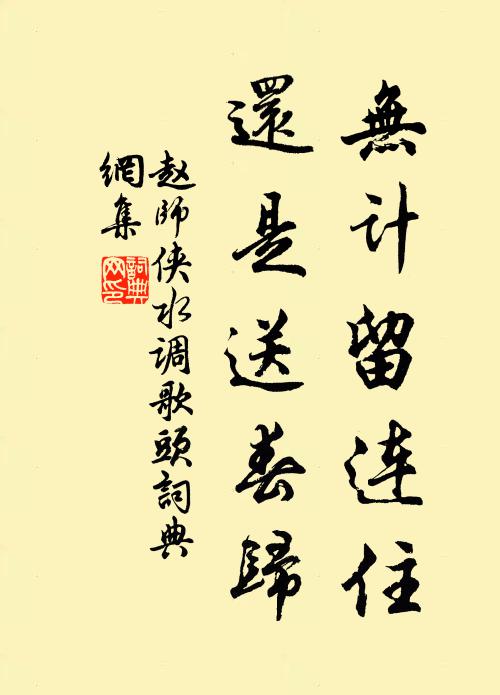 無计留连住
還是送春歸
赵師侠水调歌頭詞典
網集
詞典网印